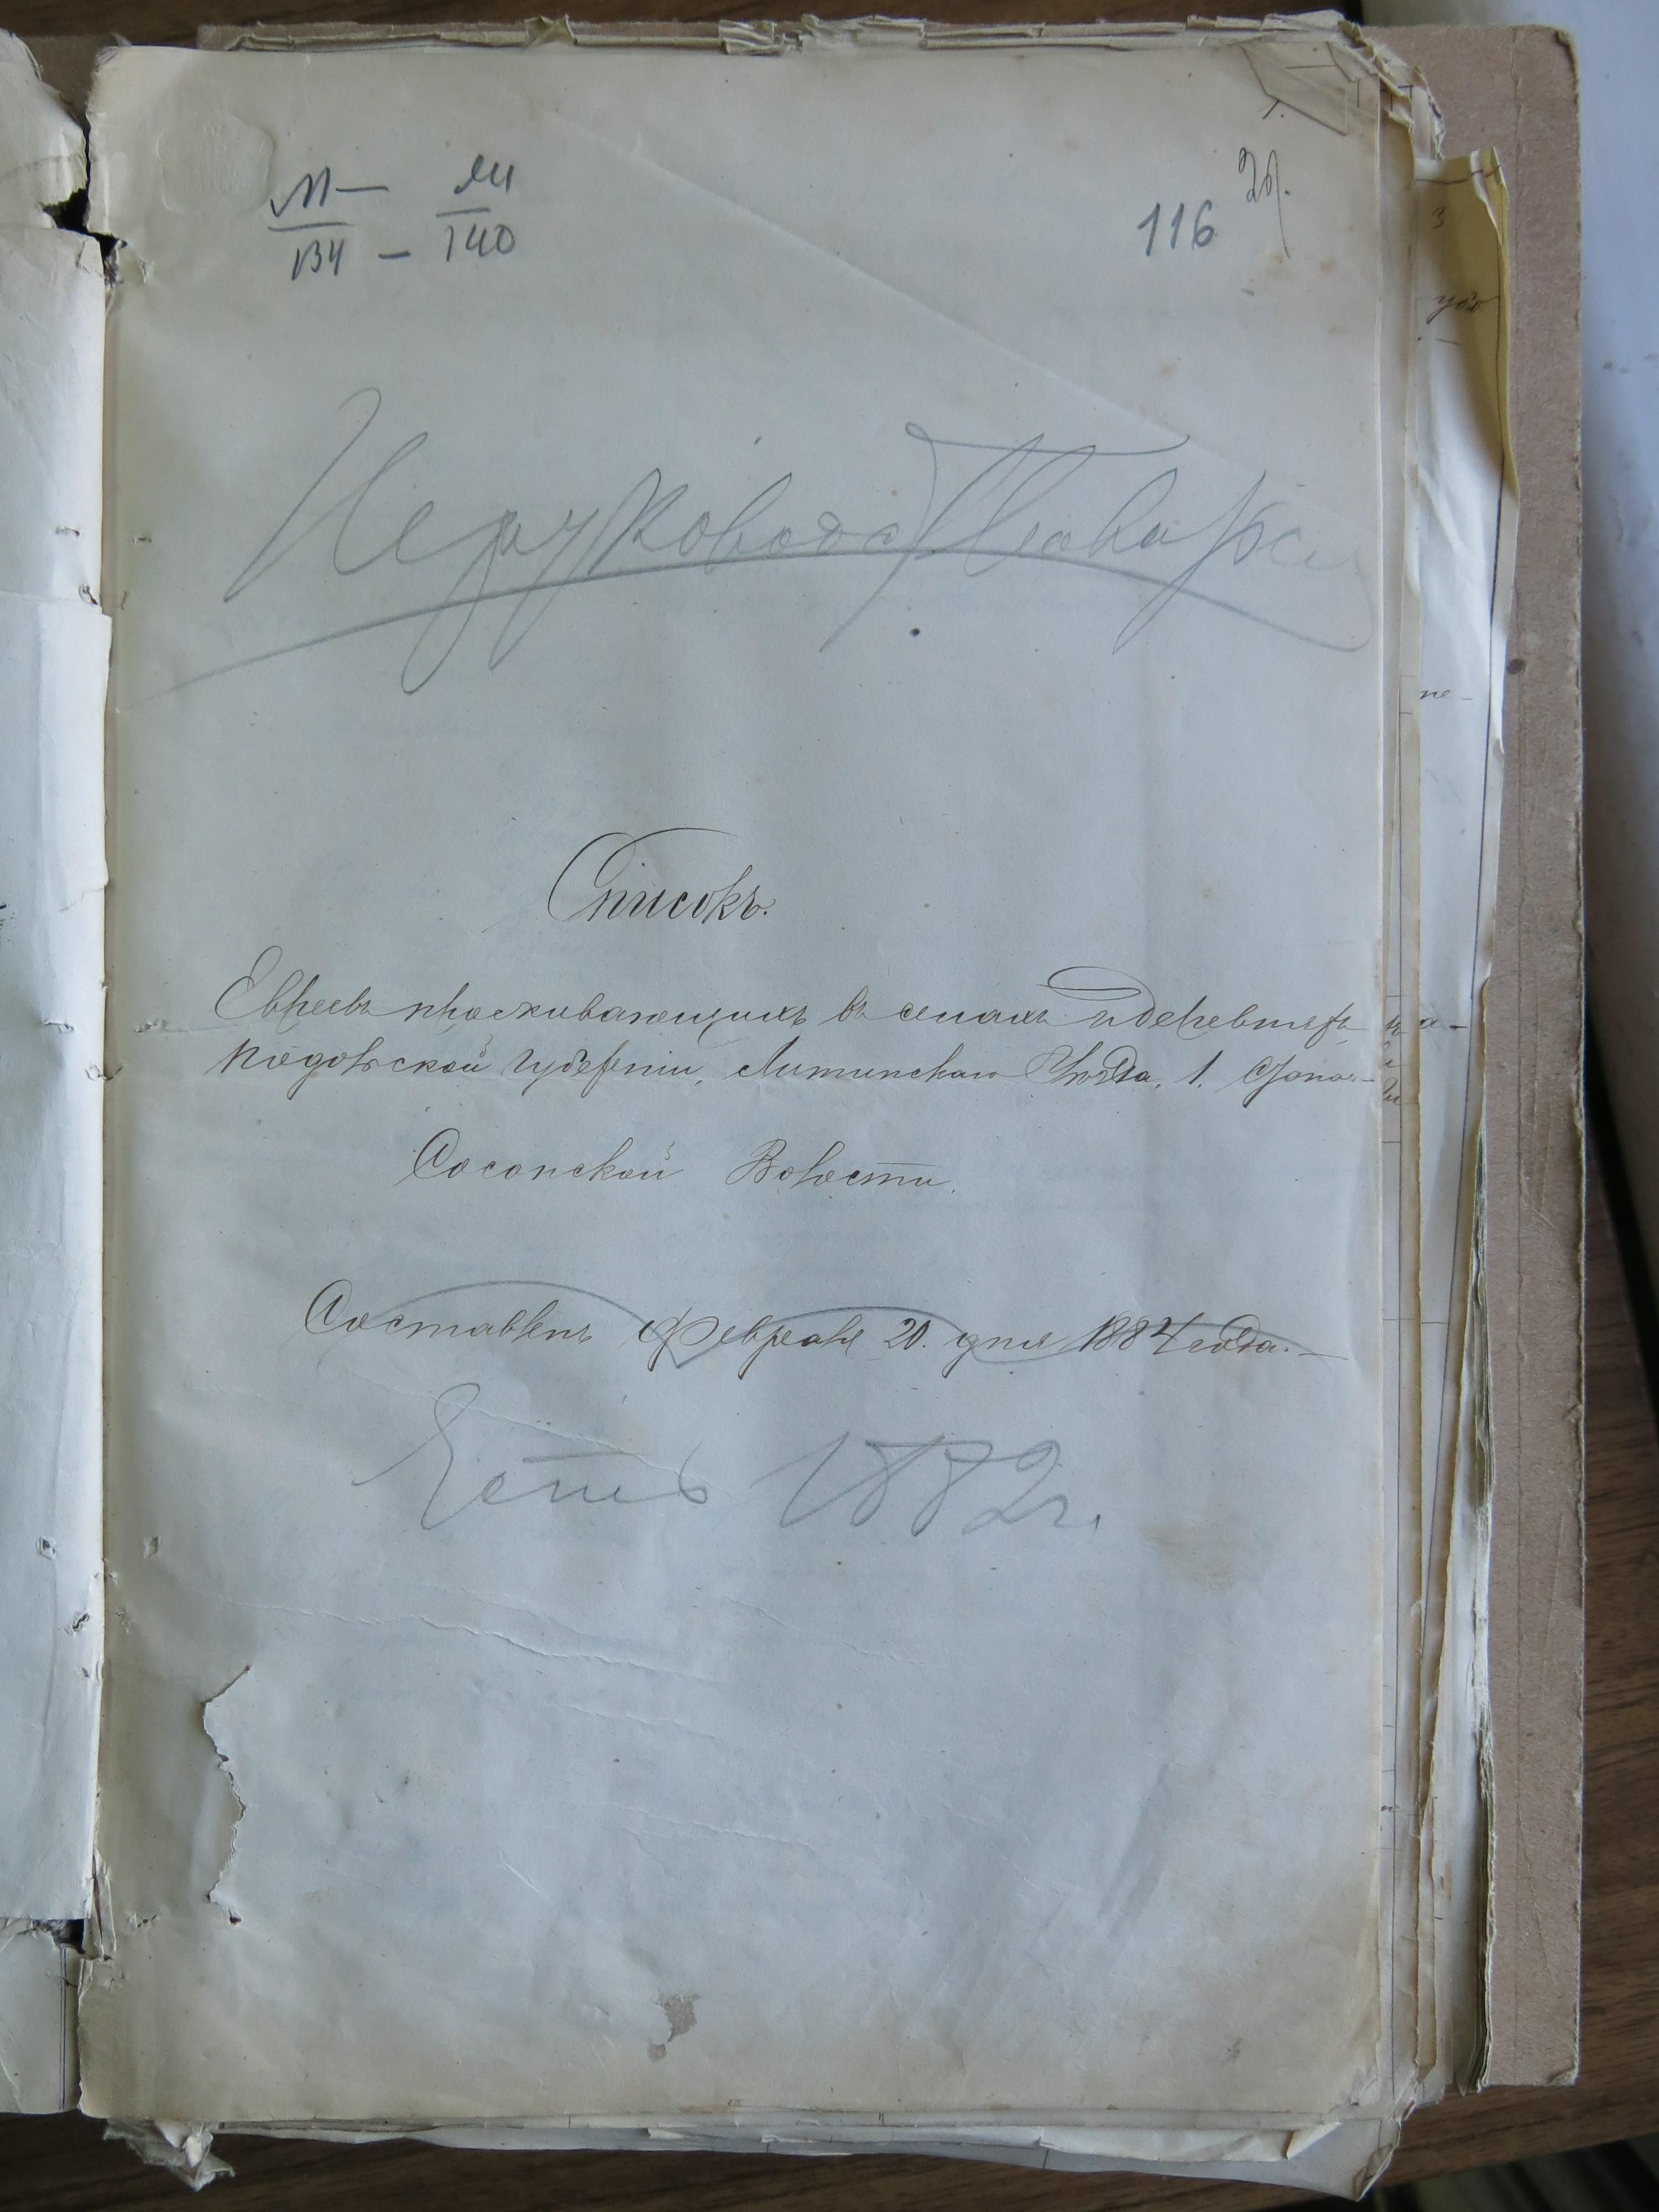 116
134 – 140
Списокъ.
Евреевъ проживающихъ въ селахъ и деревняхъ
Подольской губерніи, Литинскаго Уѣзда, 1. Стана.–
Сосонской Волости.
Составленъ Февраля 20. дня 1884 года.–
Есть 1882 г.